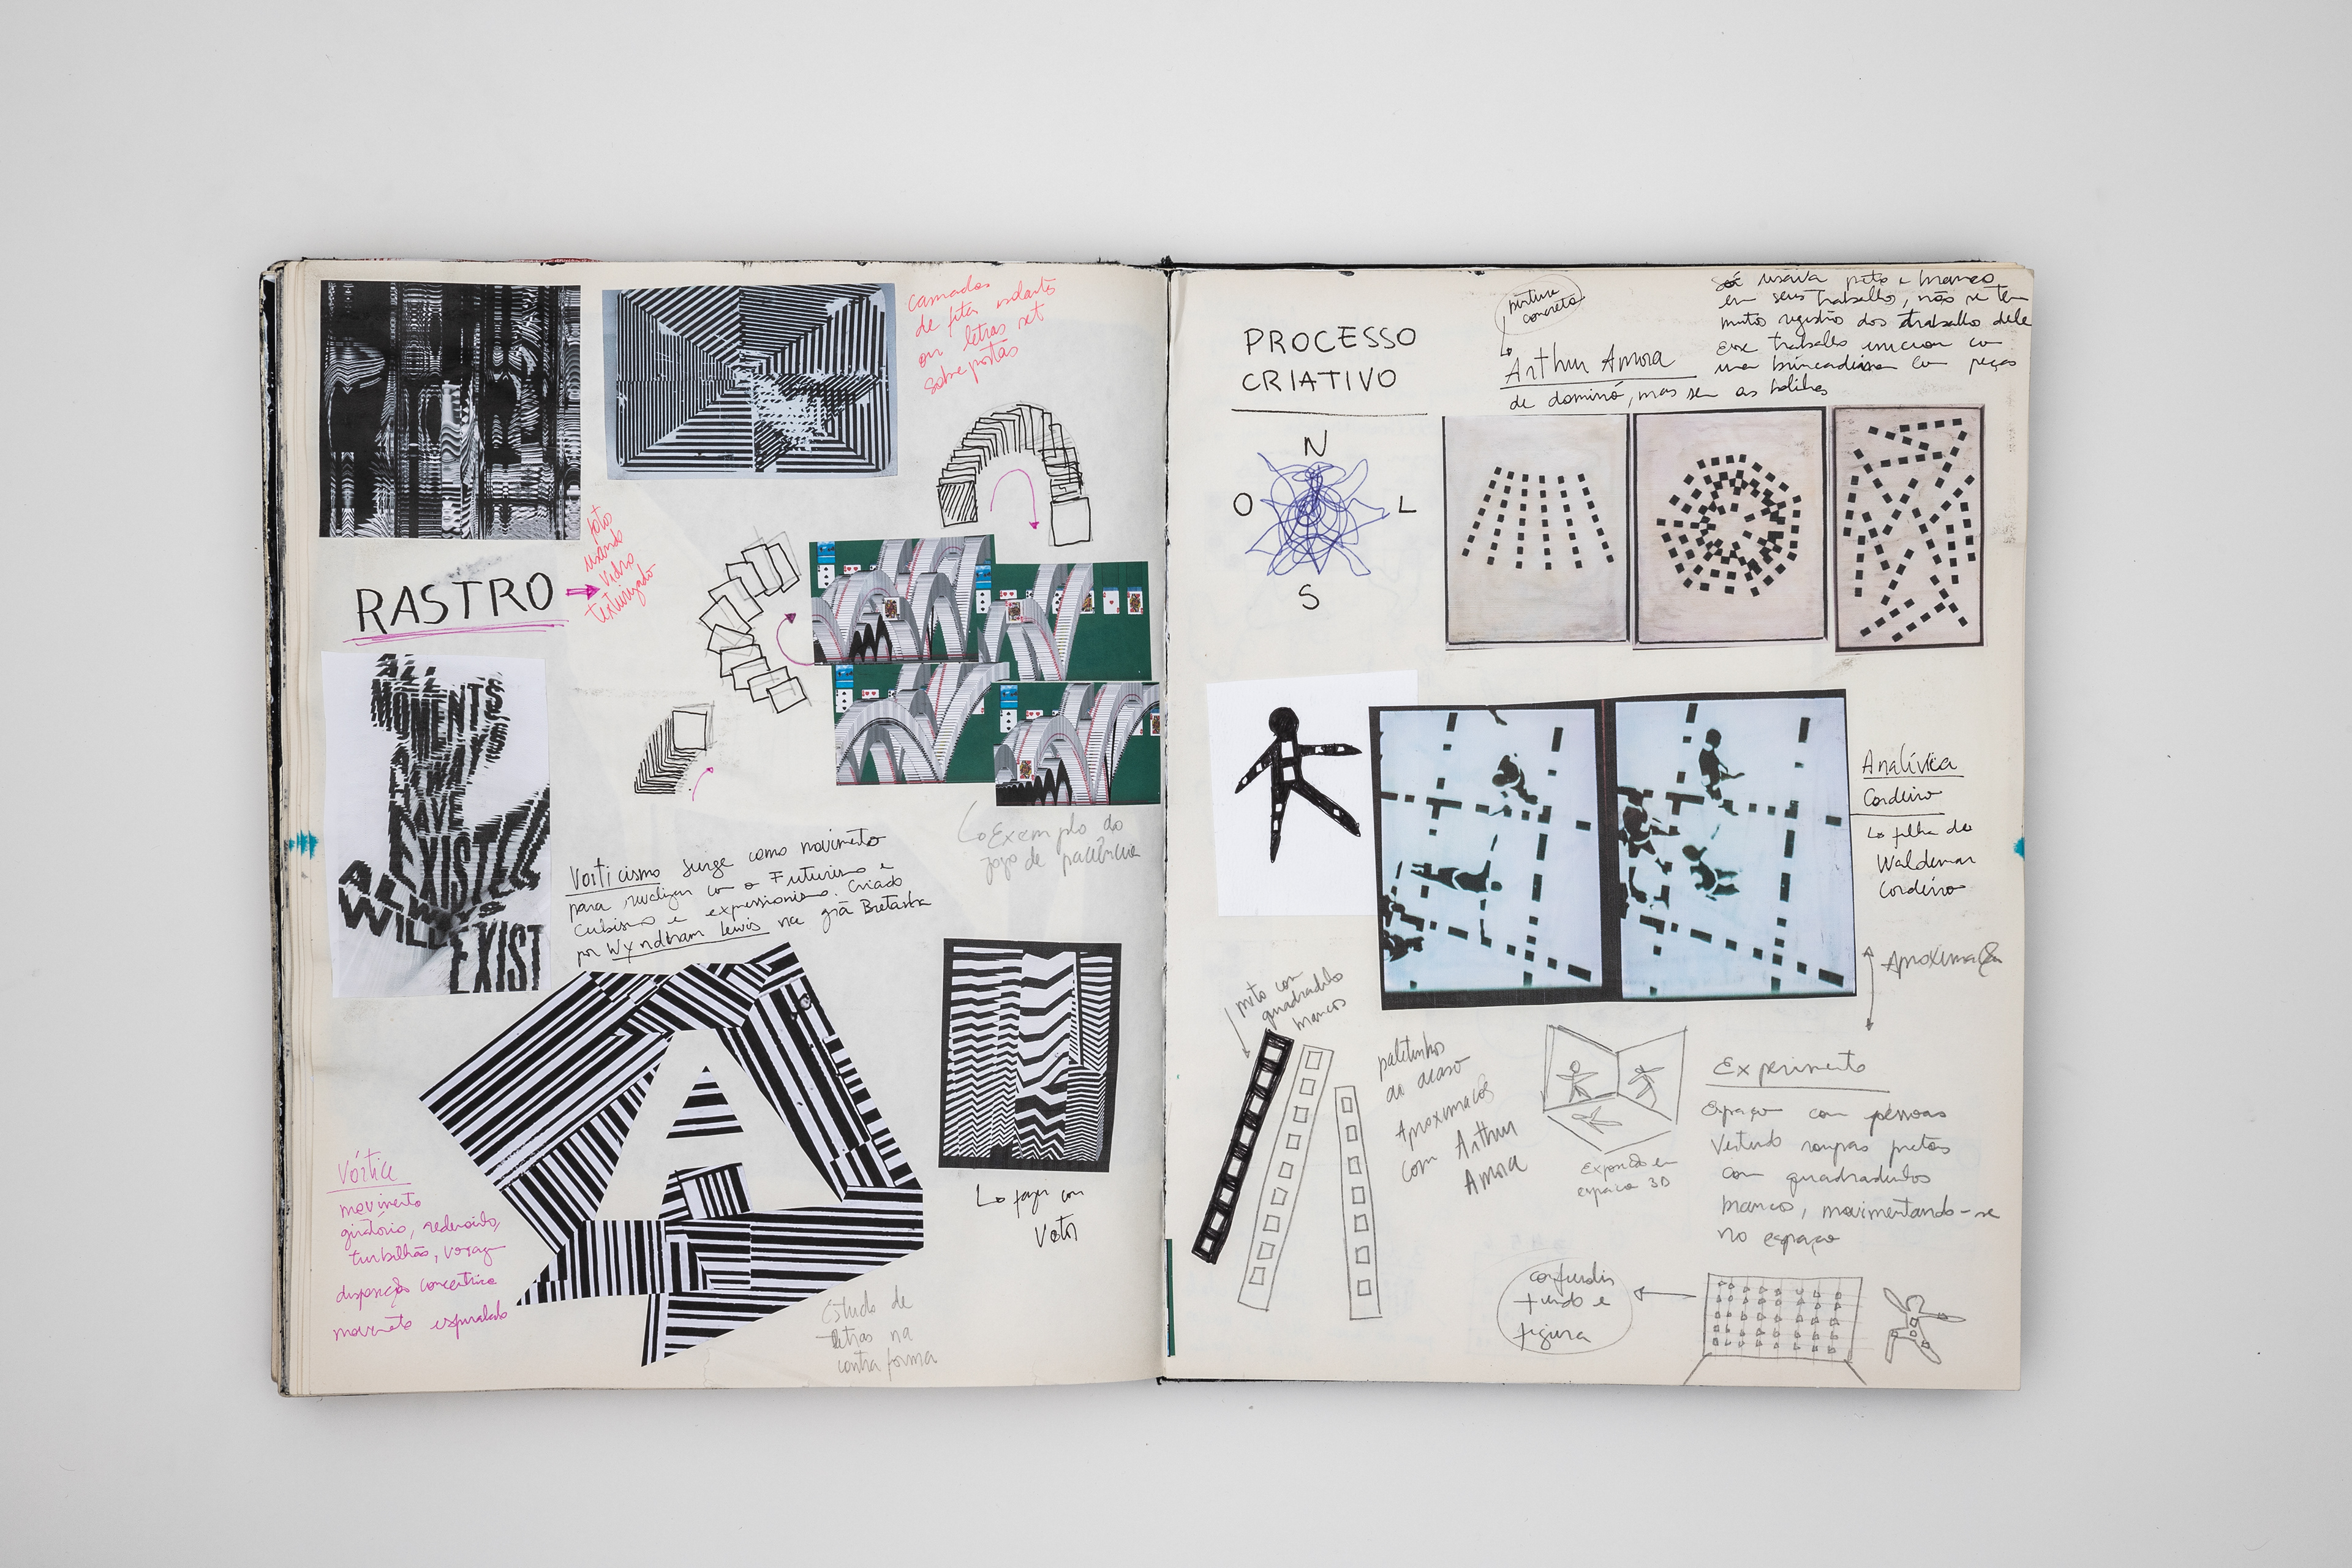 camadas
de fita isolante
ou letras set
sobrepostas
RASTRO
foto
usando
vidro
texturizado
ALL
MOMENTS
ALWAYS
HAVE
EXISTED
ALWAYS
WILL EXIST
Exemplo do
jogo de paciência
Vorticismo surge como movimento
para rivalizar com o Futurismo e
Cubismo e expressionismo. Criado
por Wyndham Lewis na grã Bretanha
Vórtice
movimento
giratório, redemoinho,
turbilhão, voragem
disposição concêntrica
movimento espiralado
Estudo de
letras na
contra forma
Lo fazer com
Vetor
PROCESSO
CRIATIVO
N
O L
S
pintura
concreta
Arthur Amora
Só usava preto e branco
em seus trabalho, não se tem
muito registro dos trabalho dele
esse trabalho iniciou com
uma brincadeira com peças
de dominó, mas sem as bolinhas
Analívia
Cordeiro
Lo filha do
Waldemar
Cordeiro
Aproximação
preto com
quadrados
brancos
palitinhos
ao acaso
Aproximação
com Arthur
Amora
Expandido em
espaço 3D
Experimento
Espaço com pessoas
Vestindo roupas pretas
com quadradinhos
brancos, movimentando-se
no espaço
fundo e
figura